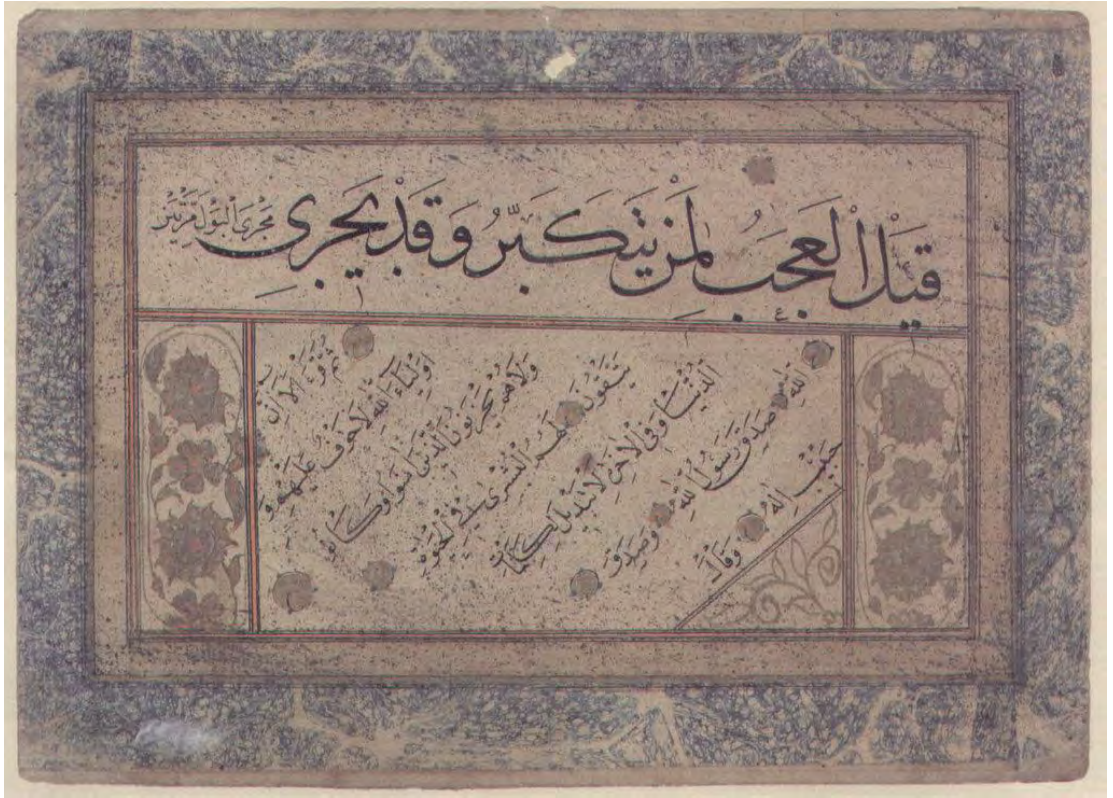 قِيلَ الْعَجَبُ لِمَنْ يَتَكَبَّرُ وَقَدْ يَجْرِى مَجْرَى الْبَوْلِ مَرَّتَيْنِ
الا ان
اولياء الله لا خوف عليهم و
ولا هم يحزنون الذين امنوا وكانوا
يتقون لهم البشرى في الحيوة
الدنيا وفي الاخرة لا تبديل لكلمات
الله صدق رسول الله وصدق
حبيب الله وقال